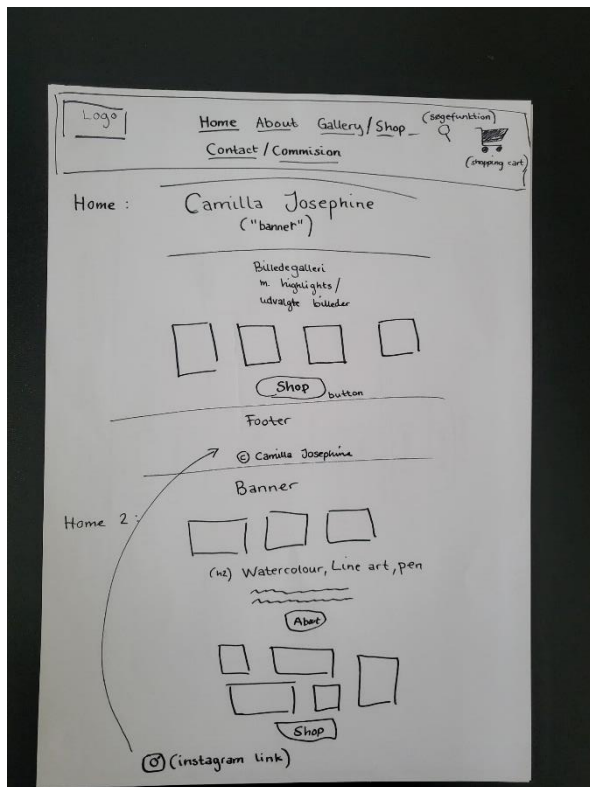 Logo
Home About Gallery/Shop
(søgefunktion)
Contact/Commision
(shopping cart)
Home :
Camilla Josephine
("banner")
Billedegalleri
m. highlights/
udvalgte billeder
Shop
button
Footer
© Camilla Josephine
Banner
Home 2 :
(h2) Watercolour, Line art, pen
About
Shop
(instagram link)